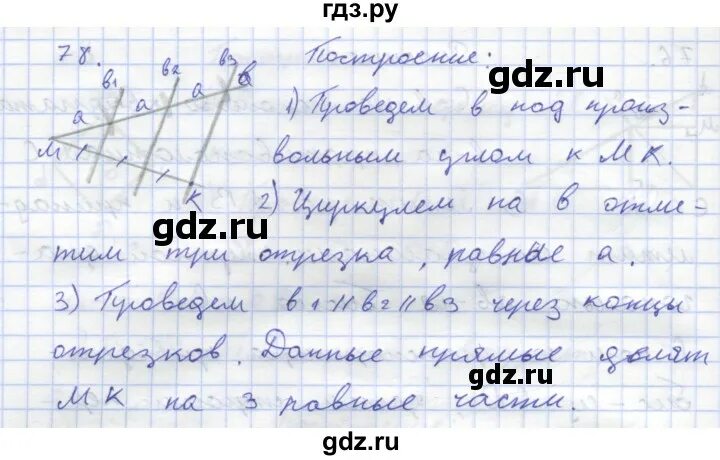 гдз.ру
78.
Построение:
в1 в2 в3 в
а а а
М
К
1) Проведем в под произ-
вольным углом к МК.
2) Циркулем на в отме-
тим три отрезка, равные а.
3) Проведем в1 || в2 || в3 через концы
отрезков. Данные прямые делят
МК на 3 равные части.
gdz.ru
gdz.ru
gdz.ru
gdz.ru
76.